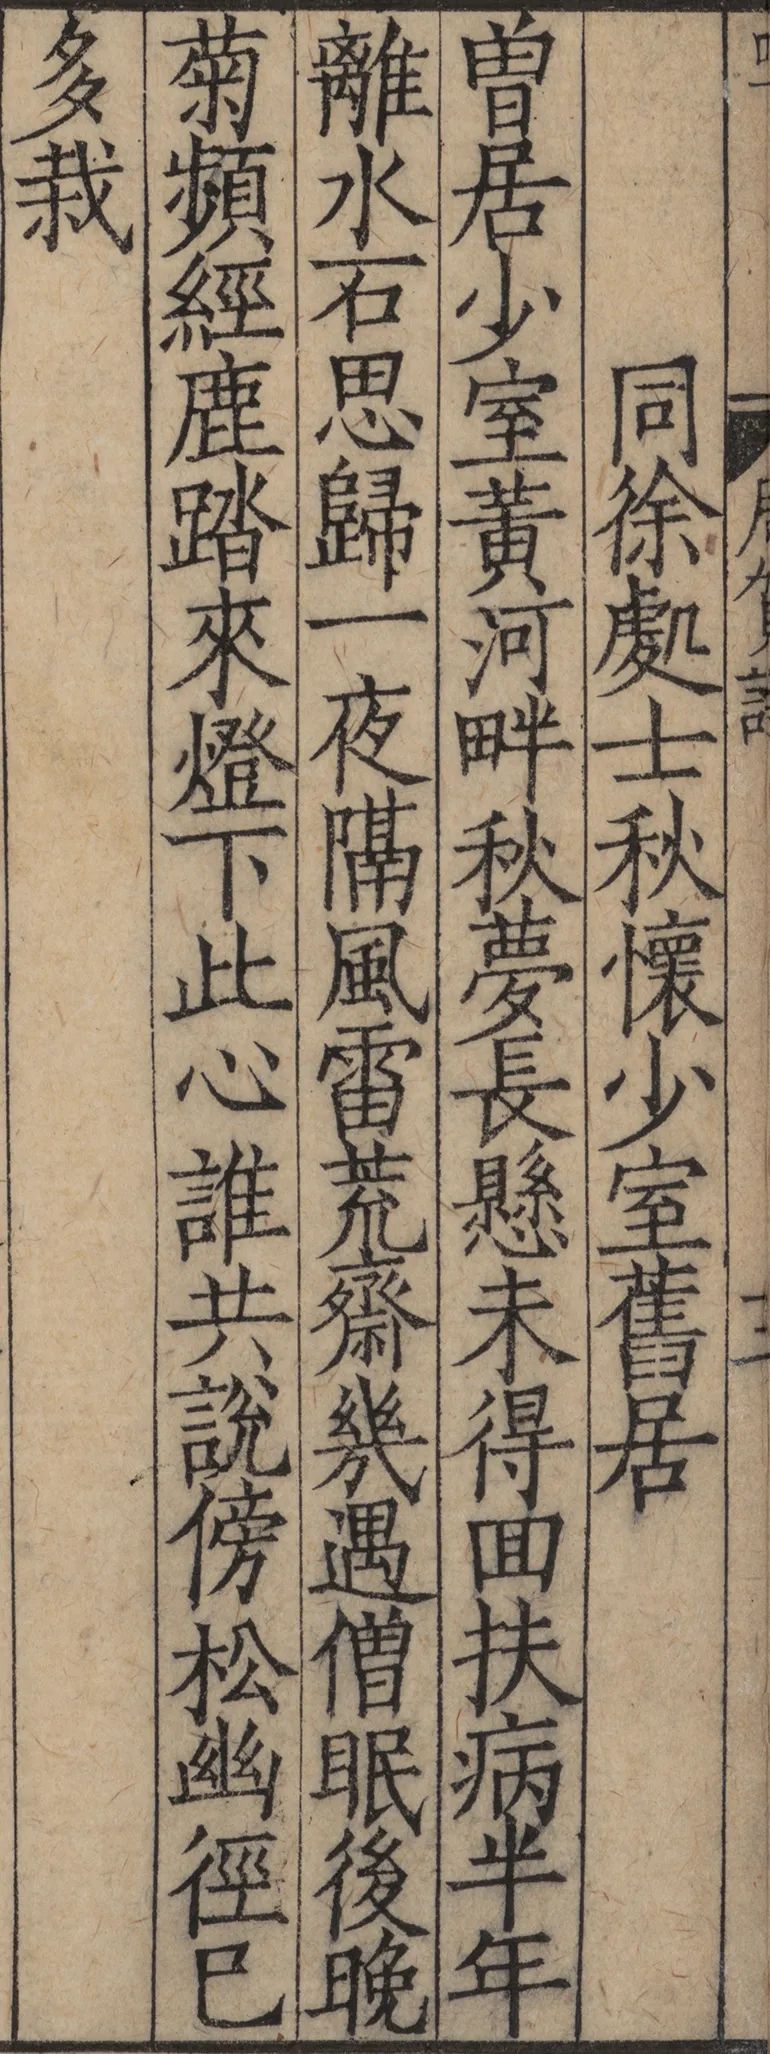 同徐處士秋懷少室舊居
曽居少室黃河畔秋夢長懸未得囬扶病半年
離水石思歸一夜隔風雷荒齋㡬遇僧眠後晚
菊頻經鹿踏來燈下此心誰共說傍松幽徑已
多栽